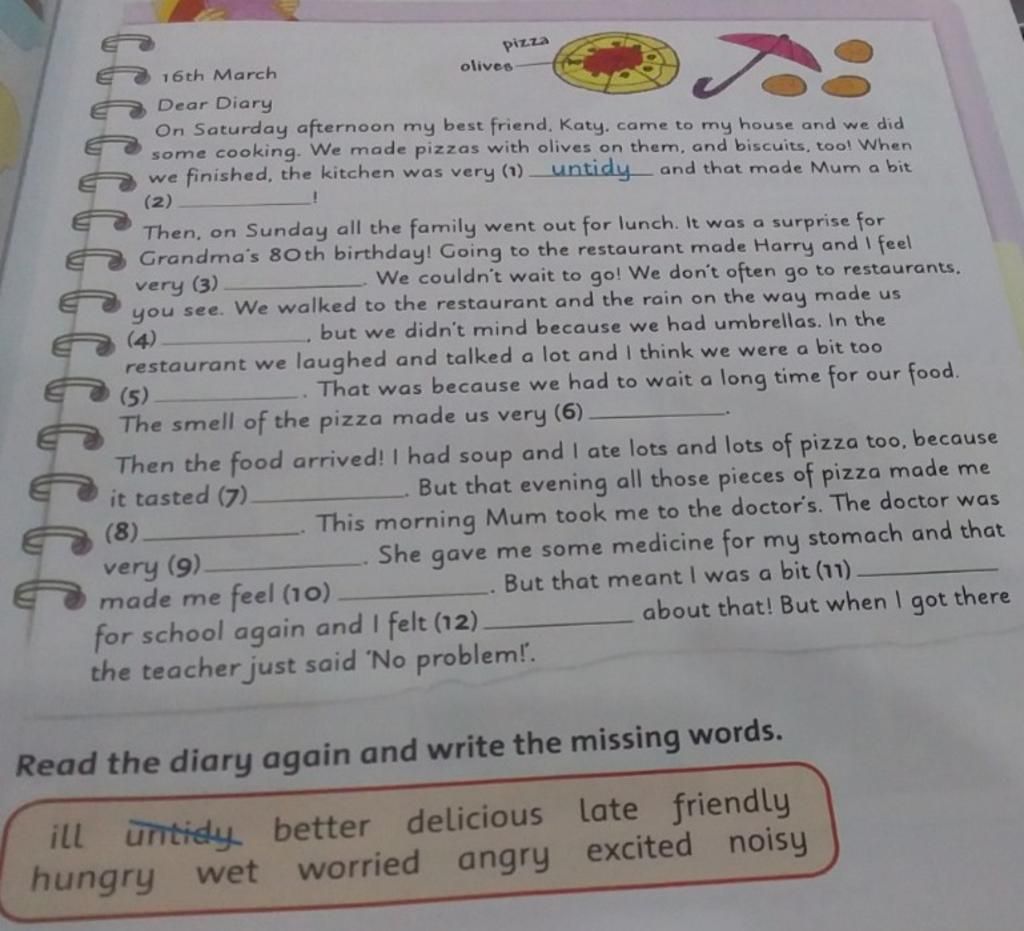 pizza
olives
16th March
Dear Diary
On Saturday afternoon my best friend, Katy, came to my house and we did
some cooking. We made pizzas with olives on them, and biscuits, too! When
we finished, the kitchen was very (1) untidy and that made Mum a bit
(2) ____________!
Then, on Sunday all the family went out for lunch. It was a surprise for
Grandma's 80th birthday! Going to the restaurant made Harry and I feel
very (3) ____________. We couldn't wait to go! We don't often go to restaurants,
you see. We walked to the restaurant and the rain on the way made us
(4) ____________, but we didn't mind because we had umbrellas. In the
restaurant we laughed and talked a lot and I think we were a bit too
(5) ____________. That was because we had to wait a long time for our food.
The smell of the pizza made us very (6) ____________.
Then the food arrived! I had soup and I ate lots and lots of pizza too, because
it tasted (7) ____________. But that evening all those pieces of pizza made me
(8) ____________. This morning Mum took me to the doctor's. The doctor was
very (9) ____________. She gave me some medicine for my stomach and that
made me feel (10) ____________. But that meant I was a bit (11) ____________
for school again and I felt (12) ____________ about that! But when I got there
the teacher just said 'No problem!'.
Read the diary again and write the missing words.
ill untidy better delicious late friendly
hungry wet worried angry excited noisy